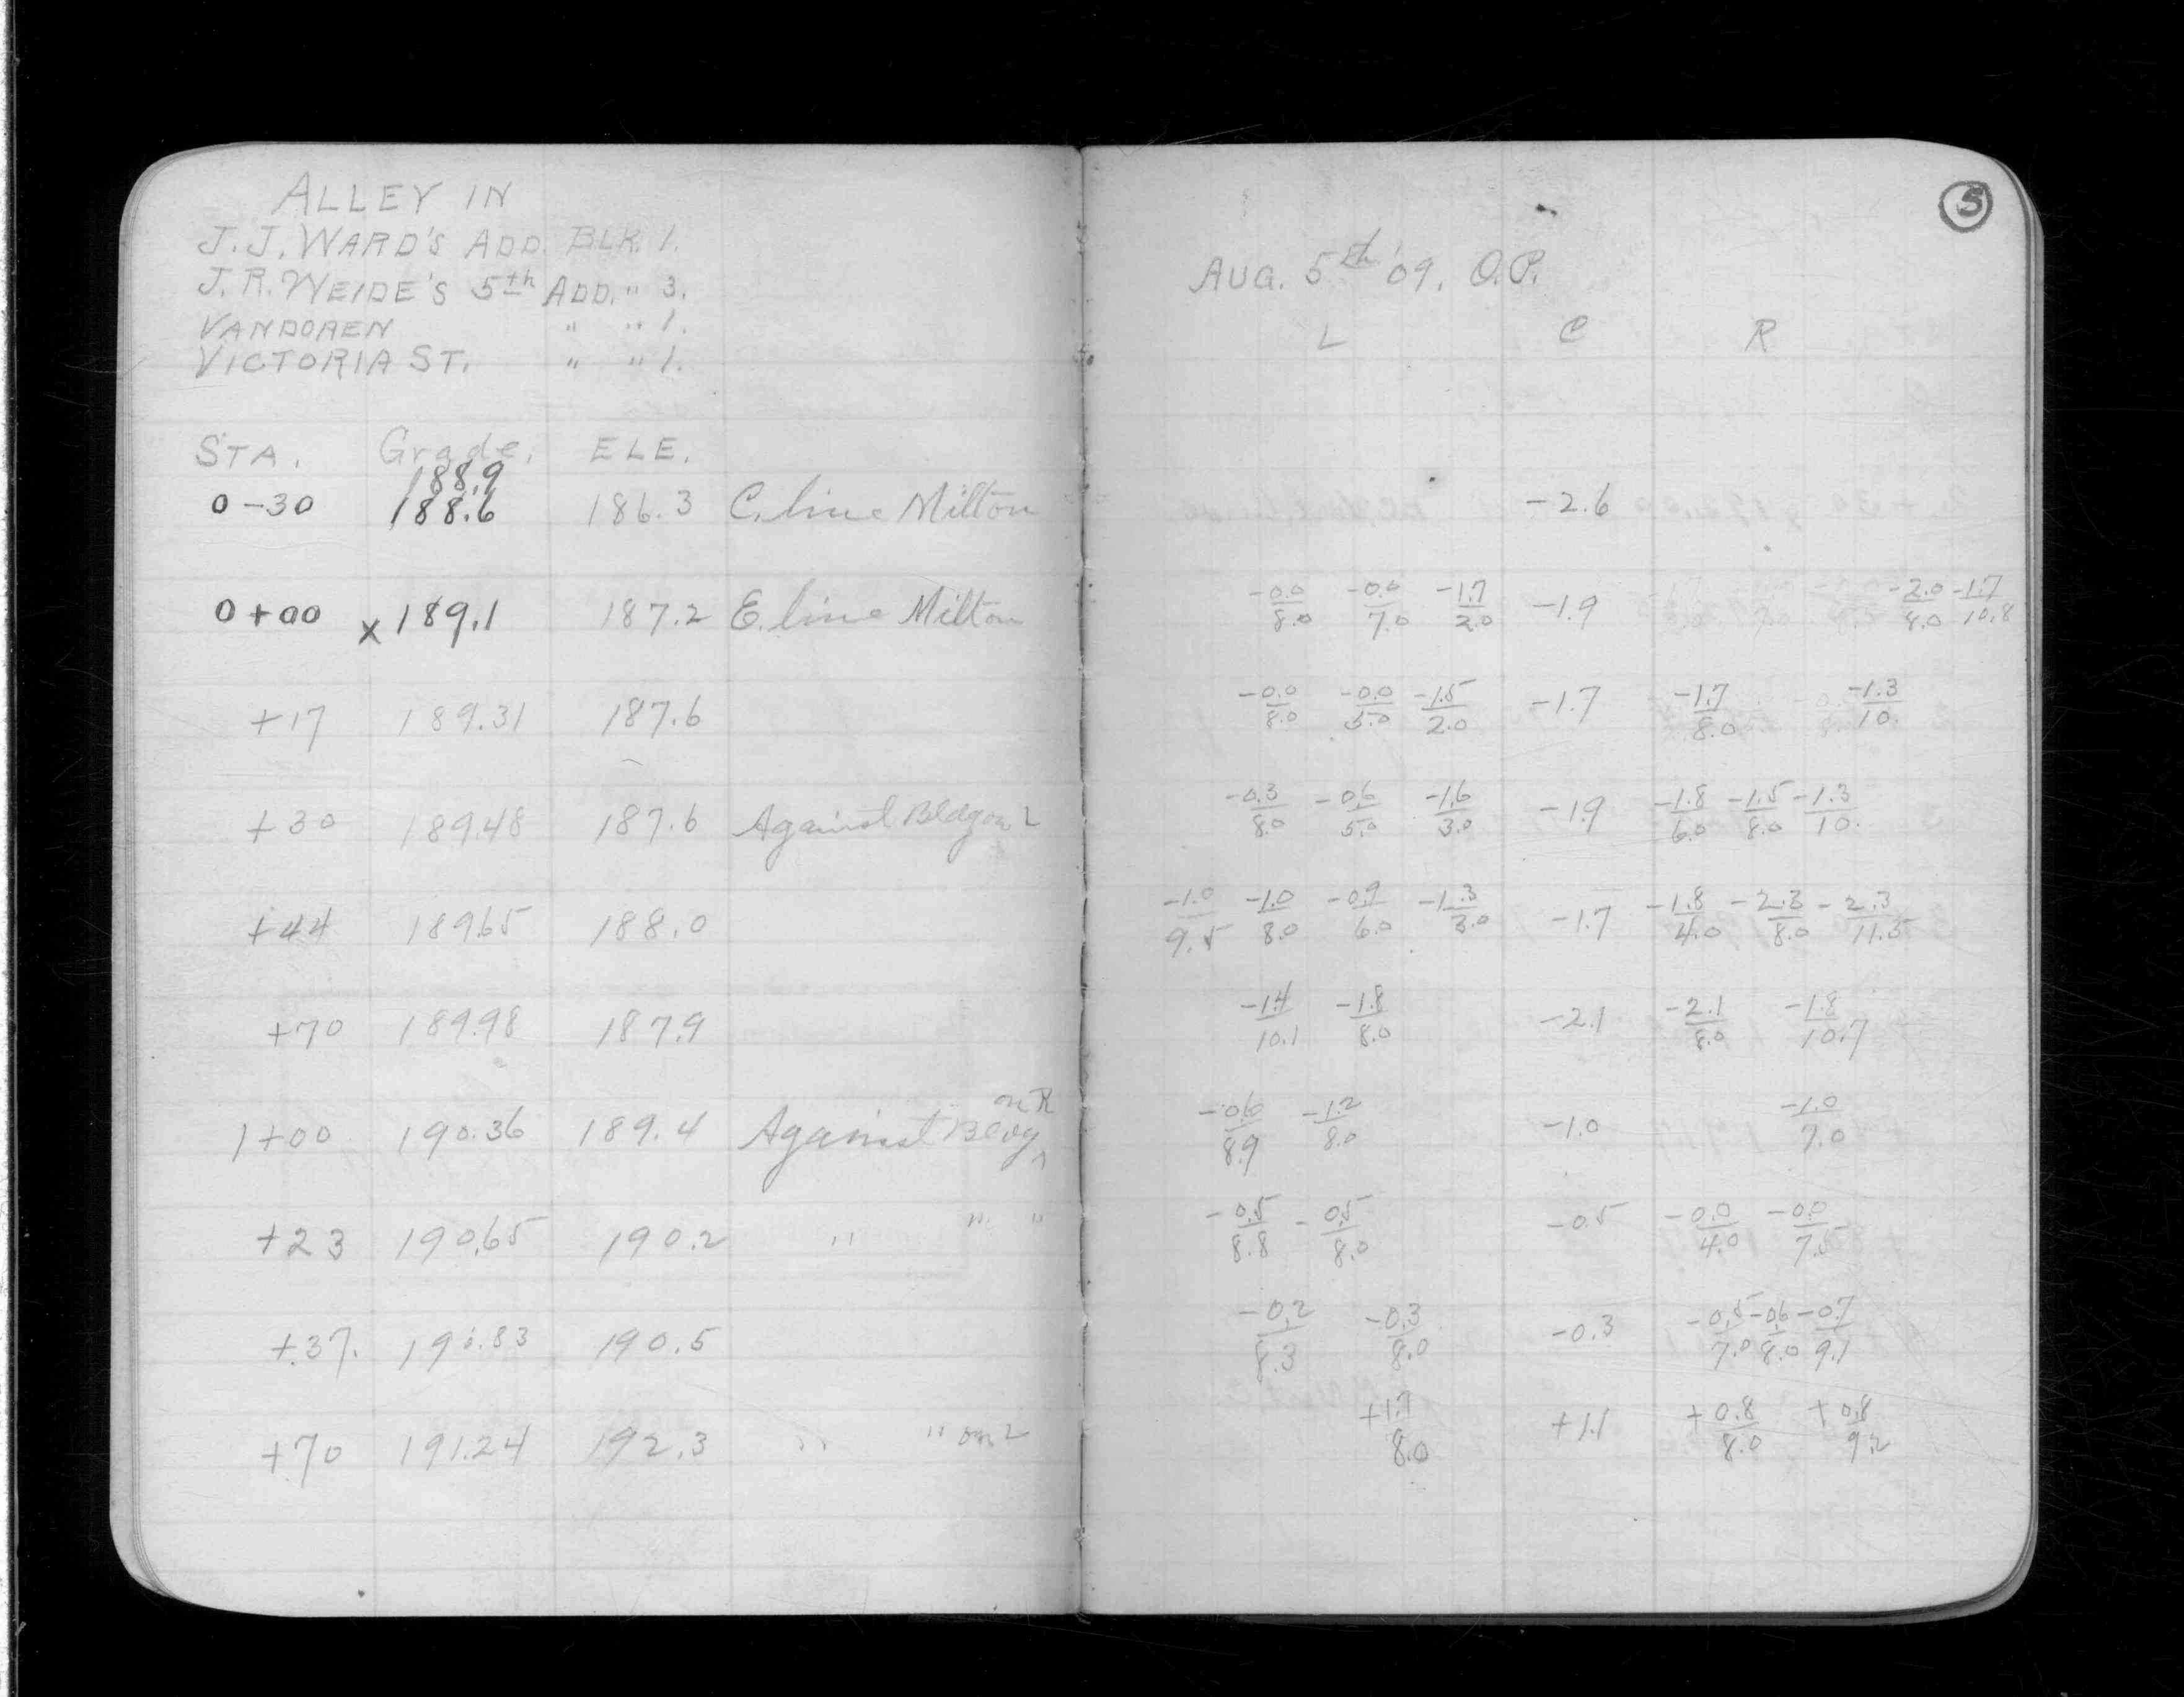 ALLEY IN
J.J. WARD'S ADD. BLK. 1.
J.R. WEIDE'S 5th ADD. " 3.
VANDOREN " " 1.
VICTORIA ST. " " 1.
STA. Grade. ELE.
188.9
0-30 188.6 186.3 C. line Milton
0+00 x 189.1 187.2 E. line Milton
+17 189.31 187.6
+30 189.48 187.6 Against Bldg on L
+44 189.65 188.0
+70 189.98 187.9
on R
1+00 190.36 189.4 Against Bldg ^
+23 190.65 190.2 " " "
+37. 190.83 190.5
+70 191.24 192.3 " " on L
5
AUG. 5th '09. O.P.
L C R
-2.6
-0.0/8.0 -0.0/7.0 -1.7/2.0 -1.9 -2.0/8.0 -1.7/10.8
-0.0/8.0 -0.0/5.0 -1.5/2.0 -1.7 -1.7/8.0 -1.3/10.
-0.3/8.0 -0.6/5.0 -1.6/3.0 -1.9 -1.8/6.0 -1.5/8.0 -1.3/10.
-1.0/9.5 -1.0/8.0 -0.9/6.0 -1.3/3.0 -1.7 -1.8/4.0 -2.3/8.0 -2.3/11.5
-1.4/10.1 -1.8/8.0 -2.1 -2.1/8.0 -1.8/10.7
-0.6/8.9 -1.2/8.0 -1.0 -1.0/7.0
-0.5/8.8 -0.5/8.0 -0.5 -0.0/4.0 -0.0/7.0
-0.2/8.3 -0.3/8.0 -0.3 -0.5/7.0 -0.6/8.0 -0.7/9.1
+1.7/8.0 +1.1 +0.8/8.0 +0.8/9.2